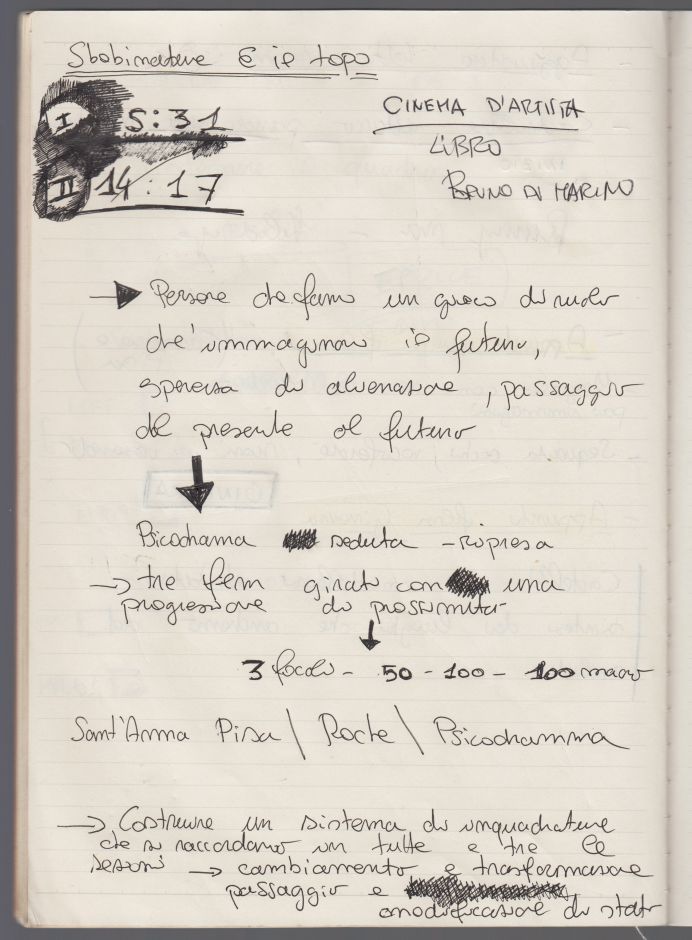 Sbobinature E il topo
I 5:31
II 14:17
CINEMA D'ARTISTA
LIBRO
BRUNO DI MARINO
→ Persone che fanno un gioco di ruolo
che immaginano il futuro,
di alienazione, passaggio
dal presente al futuro
Psicodramma seduta - ripresa
→ tre film girati con una
progressione di prossimità
3 focali - 50 - 100 - 100 macro
Sant'Anna Pisa \ \ Psicodramma
→ Costruire un sistema di inquadrature
che si raccordano in tutte e tre le
sessioni → cambiamento e trasformazione
passaggio e
modificazione di stato